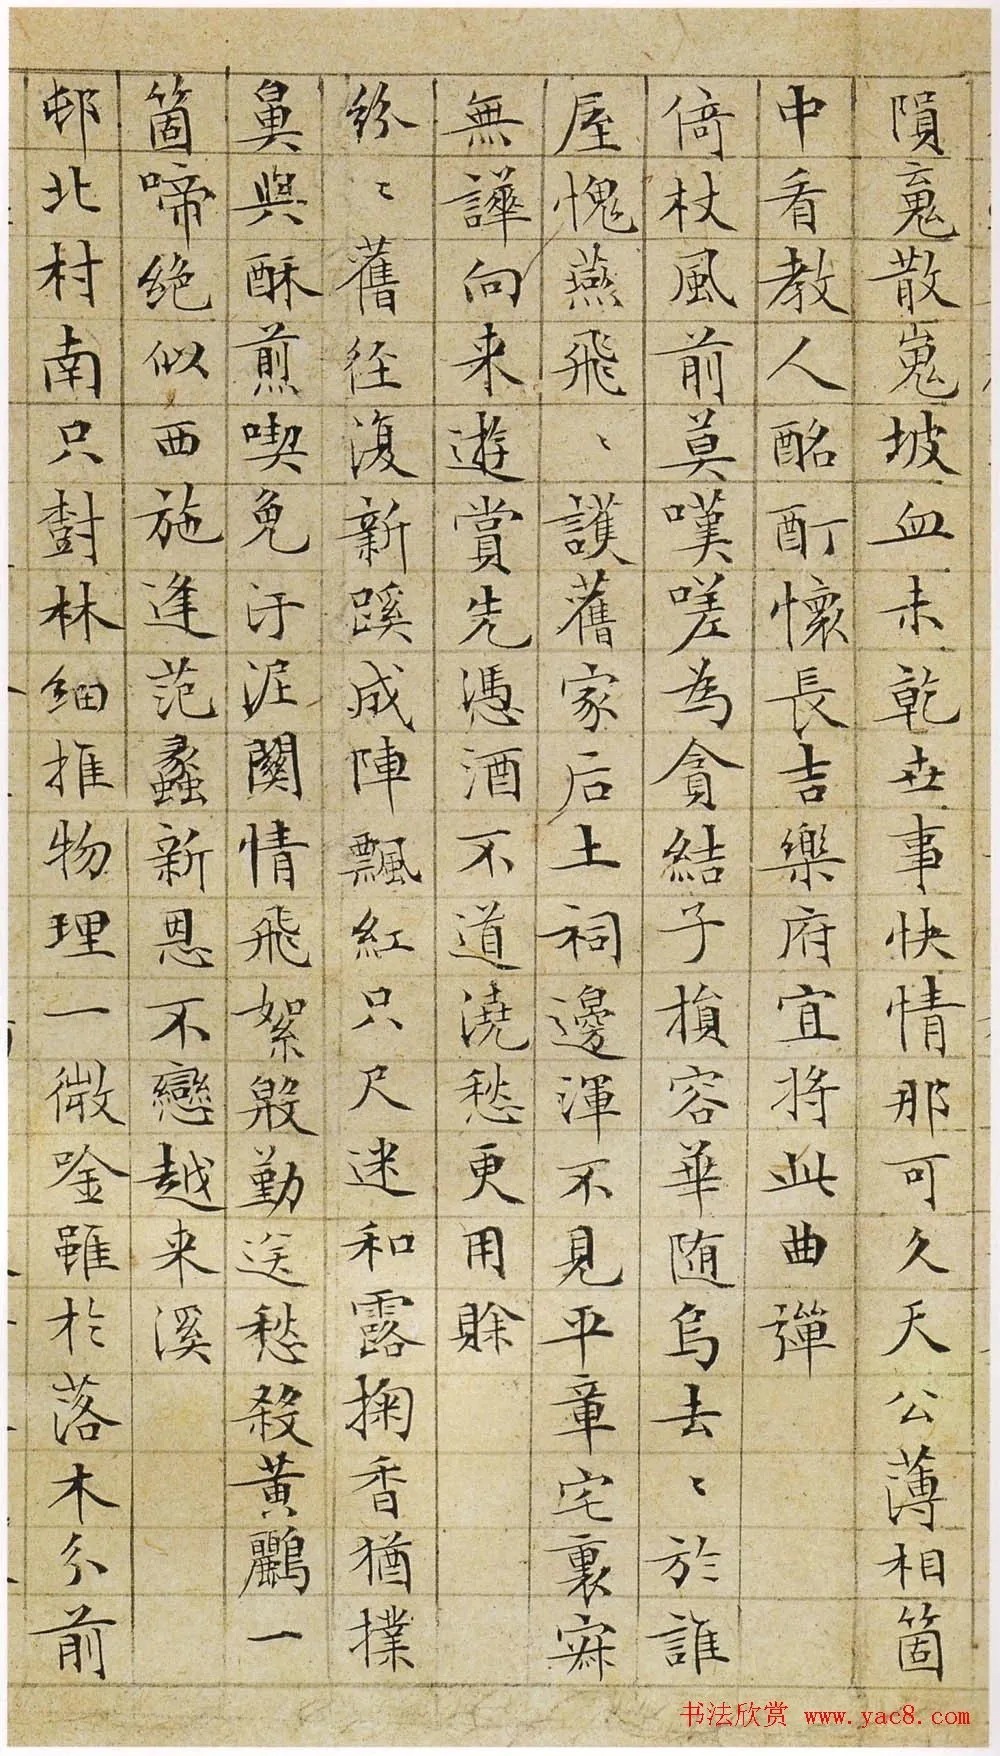 隕䰟散嵬坡血未乾世事快情那可久天公薄相箇
中看教人酩酊懷長吉樂府宜将此曲彈
倚杖風前莫嘆嗟為貪結子損容華随烏去〻於誰
屋愧燕飛〻護舊家后土祠邊渾不見平章宅裏寂
無譁向来遊賞先憑酒不道澆愁更用賖
紛〻舊徑復新蹊成陣飄紅只尺迷和露掬香猶撲
鼻與酥煎喫免汙泥関情飛絮殷勤送愁殺黃鸝一
箇啼绝似西施逢范蠡新恩不戀越来溪
邨北村南只樹林細推物理一微唫雖於落木分前
书法欣赏 www.yac8.com